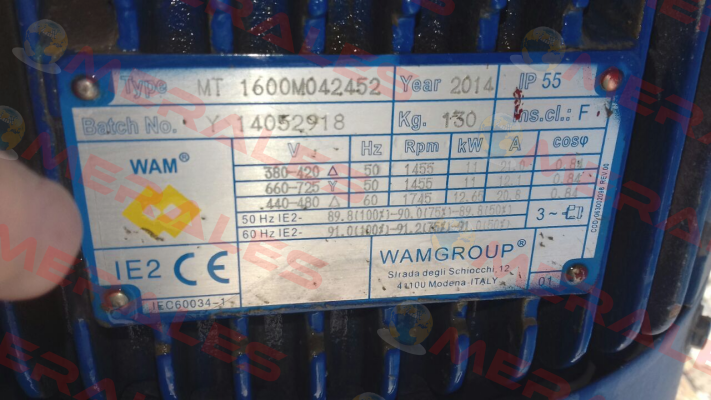 Type MT 1600M042452 Year 2014 IP 55
Batch No. Y 14052918 Kg. 130 Ins.cl.: F
WAM®
V Hz Rpm kW A cosφ
380-420 Δ 50 1455 11 0.84
660-725 Y 50 1455 11 12.1 0.84
440-480 Δ 60 1745 12.65 20.8 0.84
50 Hz IE2- 89.8(100%)-90.0(75%)-89.8(50%)
60 Hz IE2- 91.0(100%)-91.2(75%)-91.0(50%)
3~
IE2 CE
IEC60034-1
WAMGROUP®
Strada degli Schiocchi, 12
41100 Modena-ITALY
01
MERALES